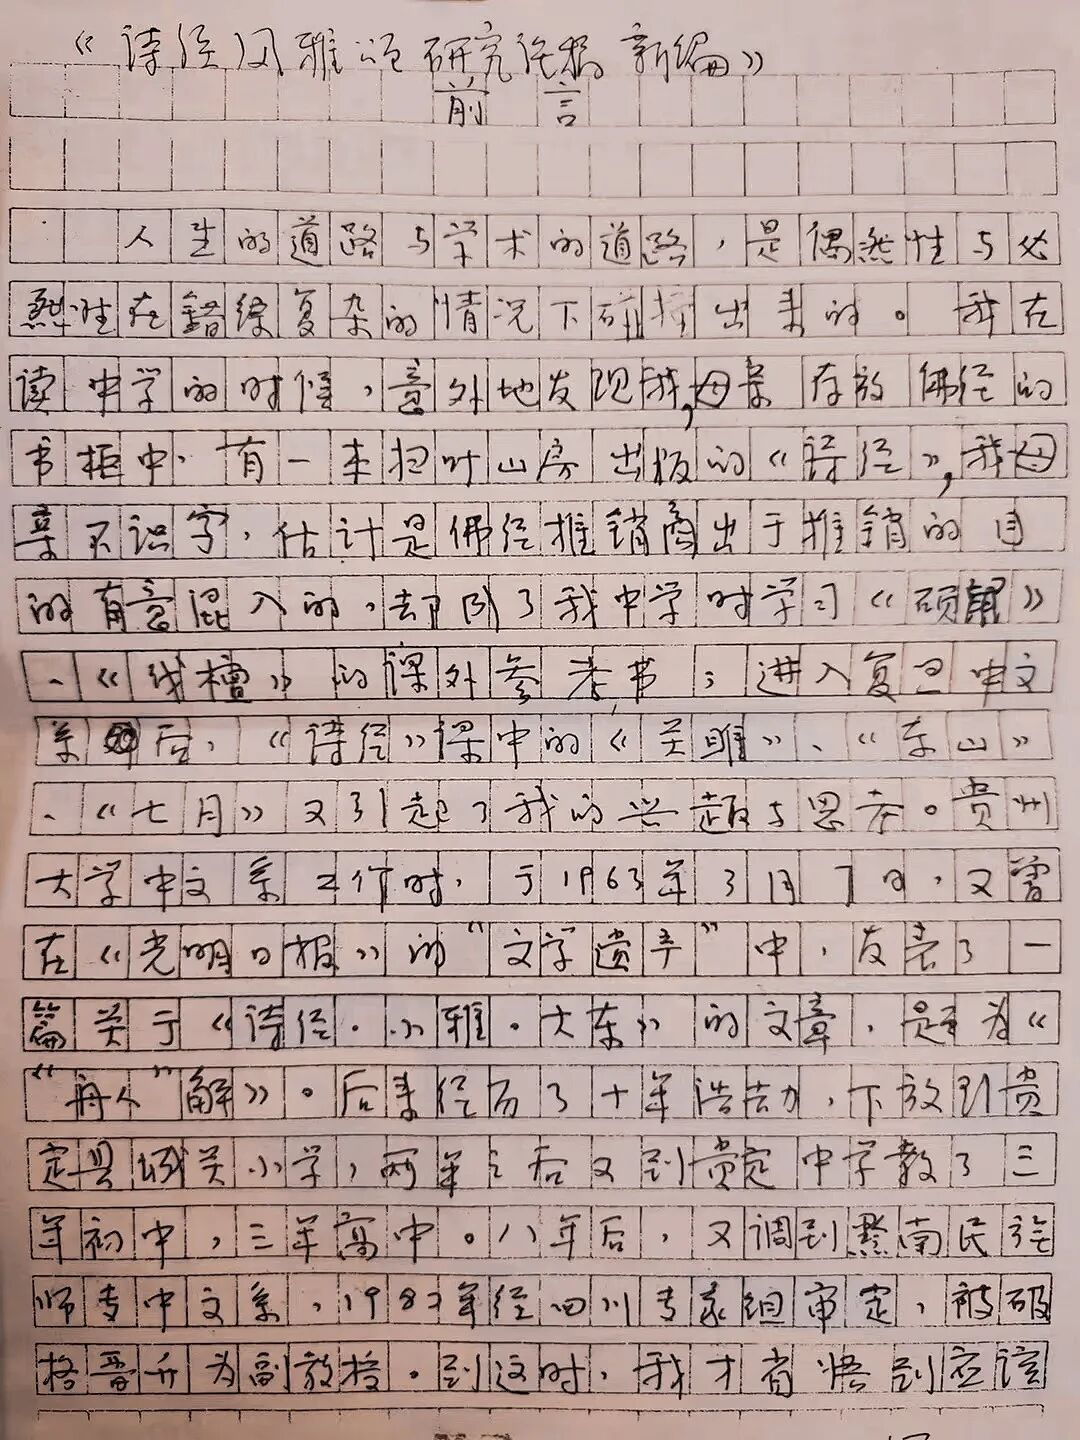 《诗经风雅颂研究论稿新编》
前言
人生的道路与学术的道路，是偶然性与必
然性在错综复杂的情况下碰撞出来的。我在
读中学的时候，意外地发现我母亲存放佛经的
书柜中，有一本扫叶山房出版的《诗经》，我母
亲不识字，估计是佛经推销商出于推销的目
的有意混入的，却成了我中学时学习《硕鼠》
、《伐檀》的课外参考书；进入复旦中文
系后，《诗经》课中的《关雎》、《东山》
、《七月》又引起了我的兴趣与思考。贵州
大学中文系工作时，于1963年3月7日，又曾
在《光明日报》的“文学遗产”中，发表了一
篇关于《诗经·小雅·大东》的文章，题为《
“舟人”解》。后来经历了十年浩劫，下放到贵
定县城关小学，两年之后又到贵定中学教了三
年初中，三年高中。八年后，又调到黔南民族
师专中文系，1987年经四川专家组审定，被破
格晋升为副教授。到这时，我才有悟到应该